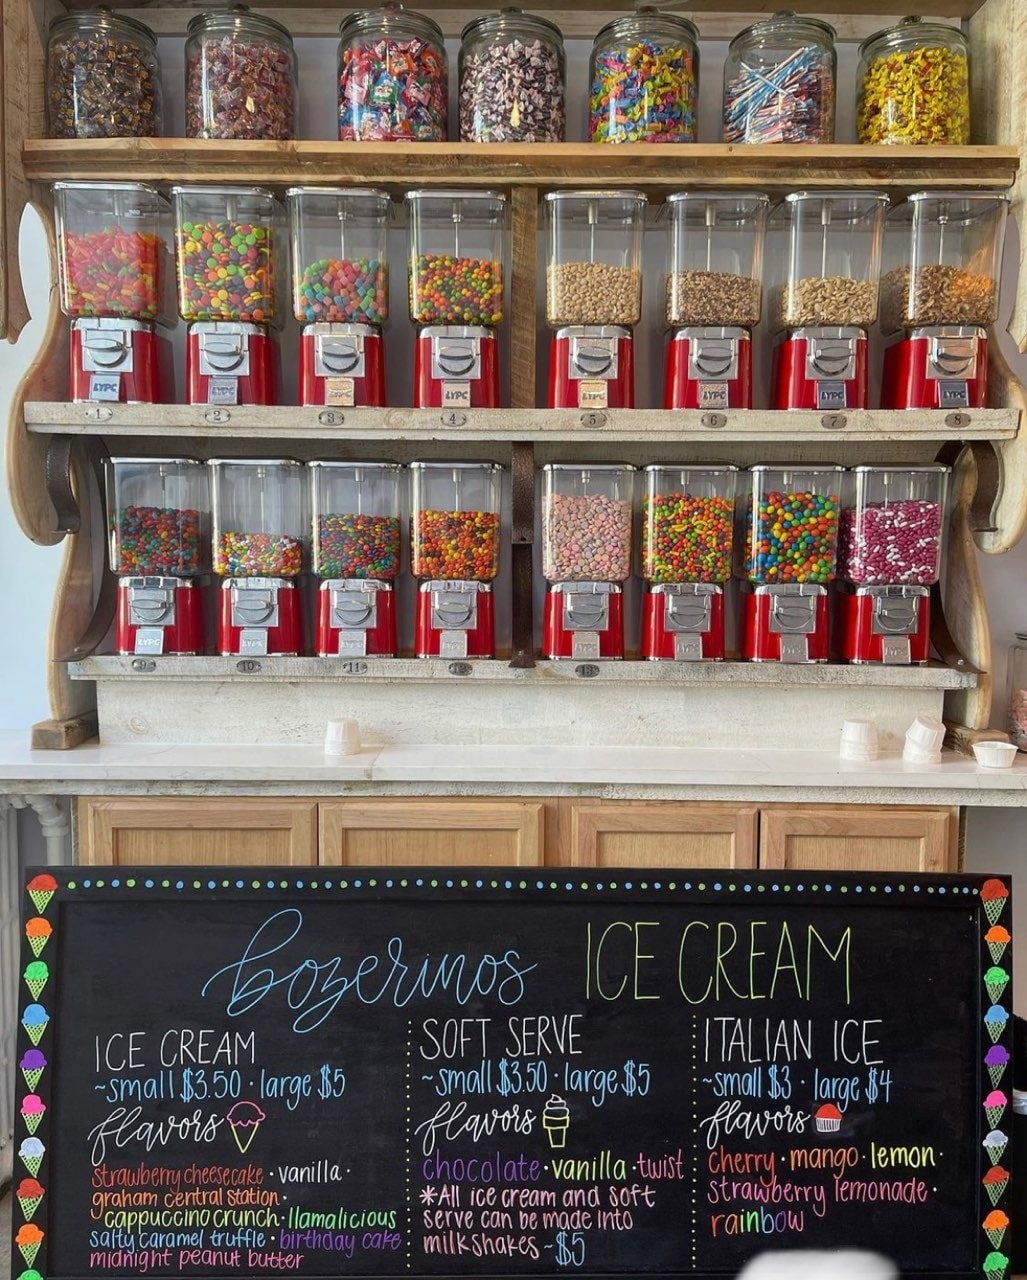 LYPC LYPC LYPC LYPC LYPC LYPC LYPC LYPC
1 2 3 4 5 6 7 8
LYPC LYPC LYPC LYPC LYPC LYPC LYPC LYPC
9 10 11 12 13
bozerinos ICE CREAM
ICE CREAM
~small $3.50 · large $5
flavors
strawberry cheesecake · vanilla ·
graham central station ·
cappuccino crunch · llamalicious
salty caramel truffle · birthday cake
midnight peanut butter
SOFT SERVE
~small $3.50 · large $5
flavors
chocolate · vanilla · twist
*All ice cream and soft
serve can be made into
milkshakes ~$5
ITALIAN ICE
~small $3 · large $4
flavors
cherry · mango · lemon ·
strawberry lemonade ·
rainbow